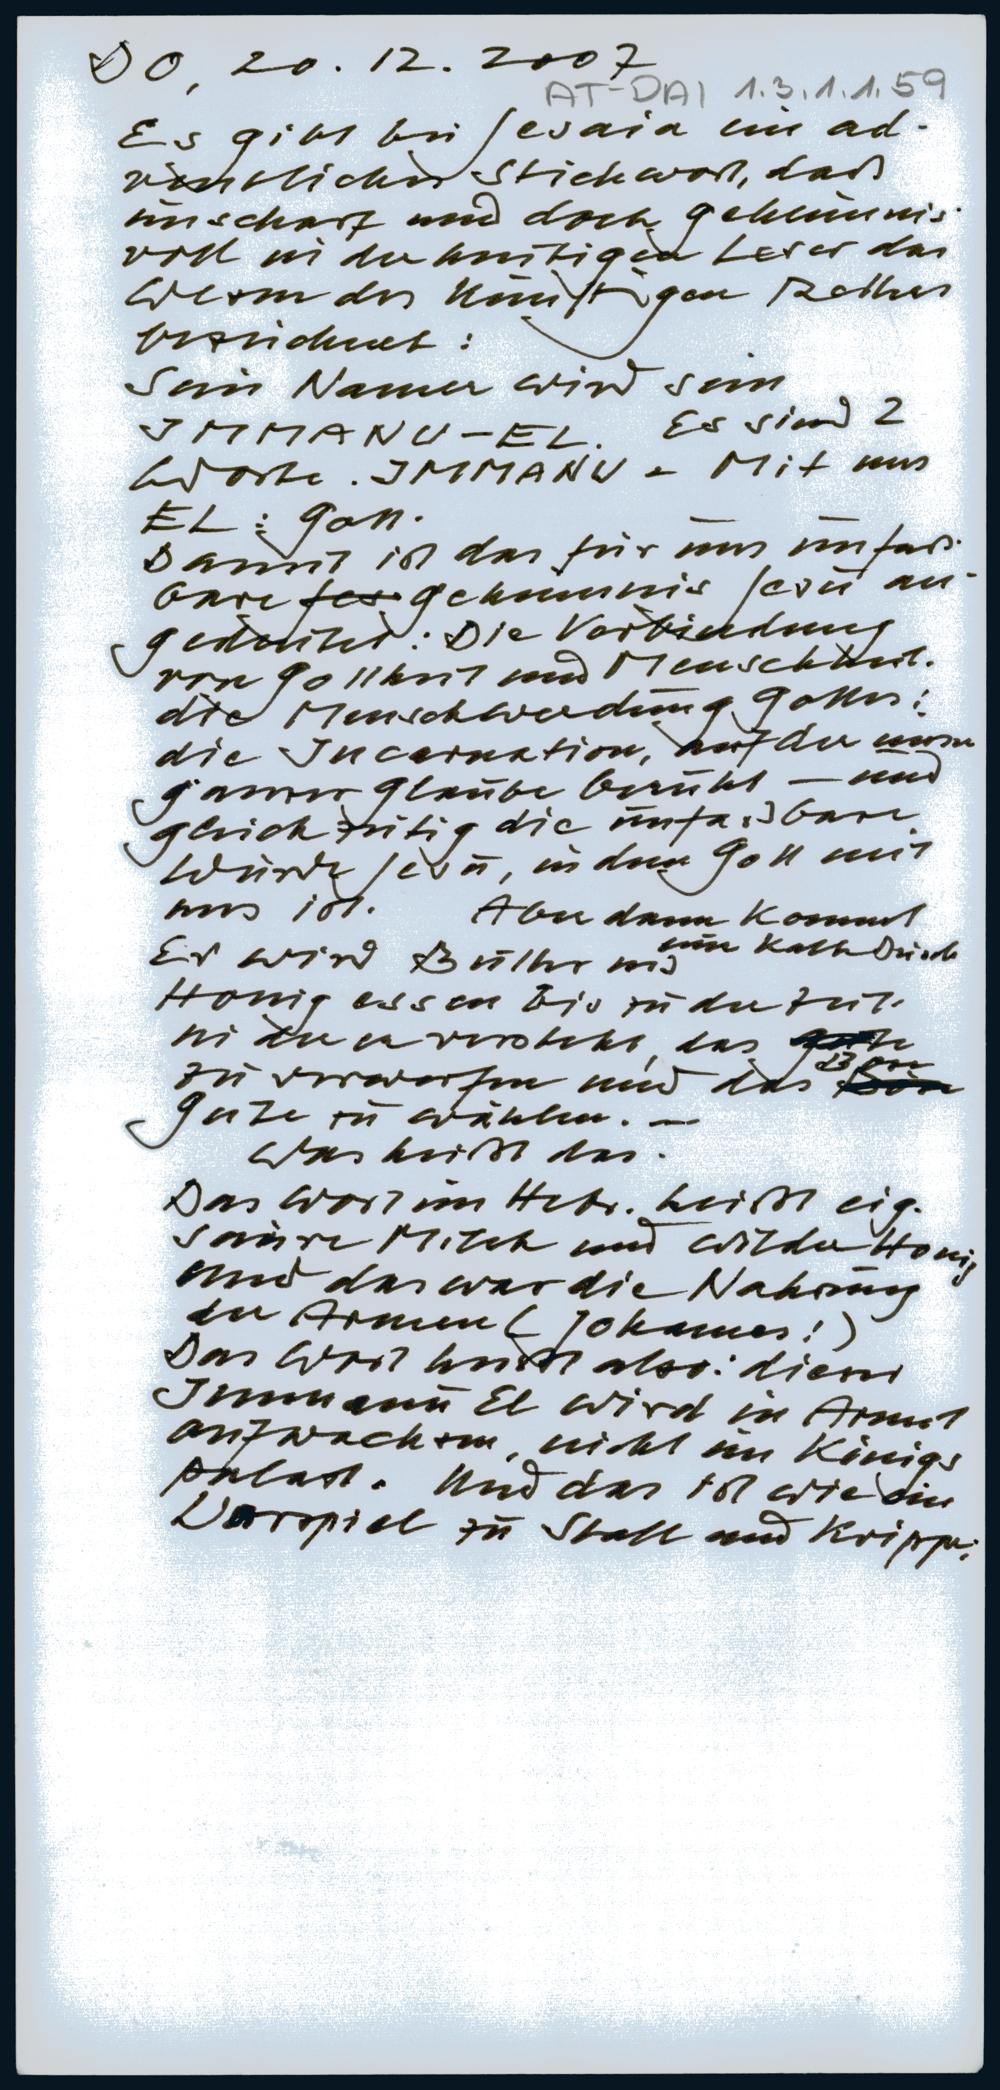 DO, 20. 12. 2007
AT-DAI 1.3.1.1.59
Es gibt bei Jesaia ein ad-
ventliches Stichwort, das
unscharf und doch geheimnis-
voll in der heutigen Leser das
Wesen des künftigen Retters
bezeichnet:
Sein Namen wird sein
IMMANU-EL. Es sind 2
Worte. IMMANU = Mit uns
EL: Gott.
Damit ist das für uns unfass-
bare Geheimnis Jesu an-
gedeutet: Die Verbindung
von Gottheit und Menschheit.
die Menschwerdung Gottes:
die Incarnation, auf der unser
ganzer Glaube beruht — und
gleichzeitig die unfassbare
Würde Jesu, in dem Gott mit
uns ist. Aber dann kommt
eine kalte Dusche
Er wird Butter und
Honig essen bis zu der Zeit.
in der er versteht, das gute
zu verwerfen und das Böse
Gute zu wählen. —
Was heißt das.
Das Wort im Hebr. heißt eig.
saure Milch und wilder Honig
Und das war die Nahrung
der Armen (Johannes!)
Das Wort heißt also: dieser
Immanu El wird in Armut
aufwachsen, nicht im Königs
palast. Und das ist wie ein
Vorspiel zu Stall und Krippe.